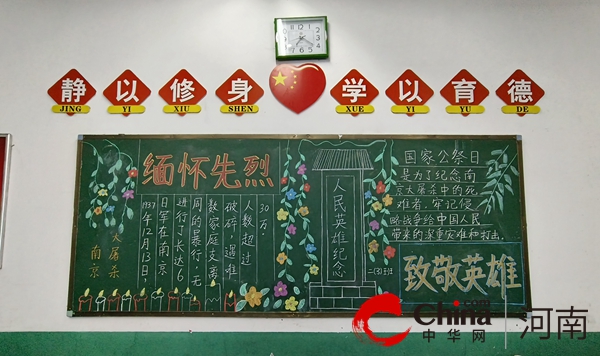 静以修身 学以育德
JING YI XIU SHEN XUE YI YU DE
缅怀先烈
南京
大屠杀
1937年12月13日,
日军在南京
进行了长达6
周的暴行,无
数家庭支离
破碎,遇难
人数超过
30万。
人民英雄纪念
二(3)班
国家公祭日
是为了纪念南
京大屠杀中的死
难者。牢记侵
略战争给中国人民
带来的深重灾难和打击.
致敬英雄
China
中华网
河南